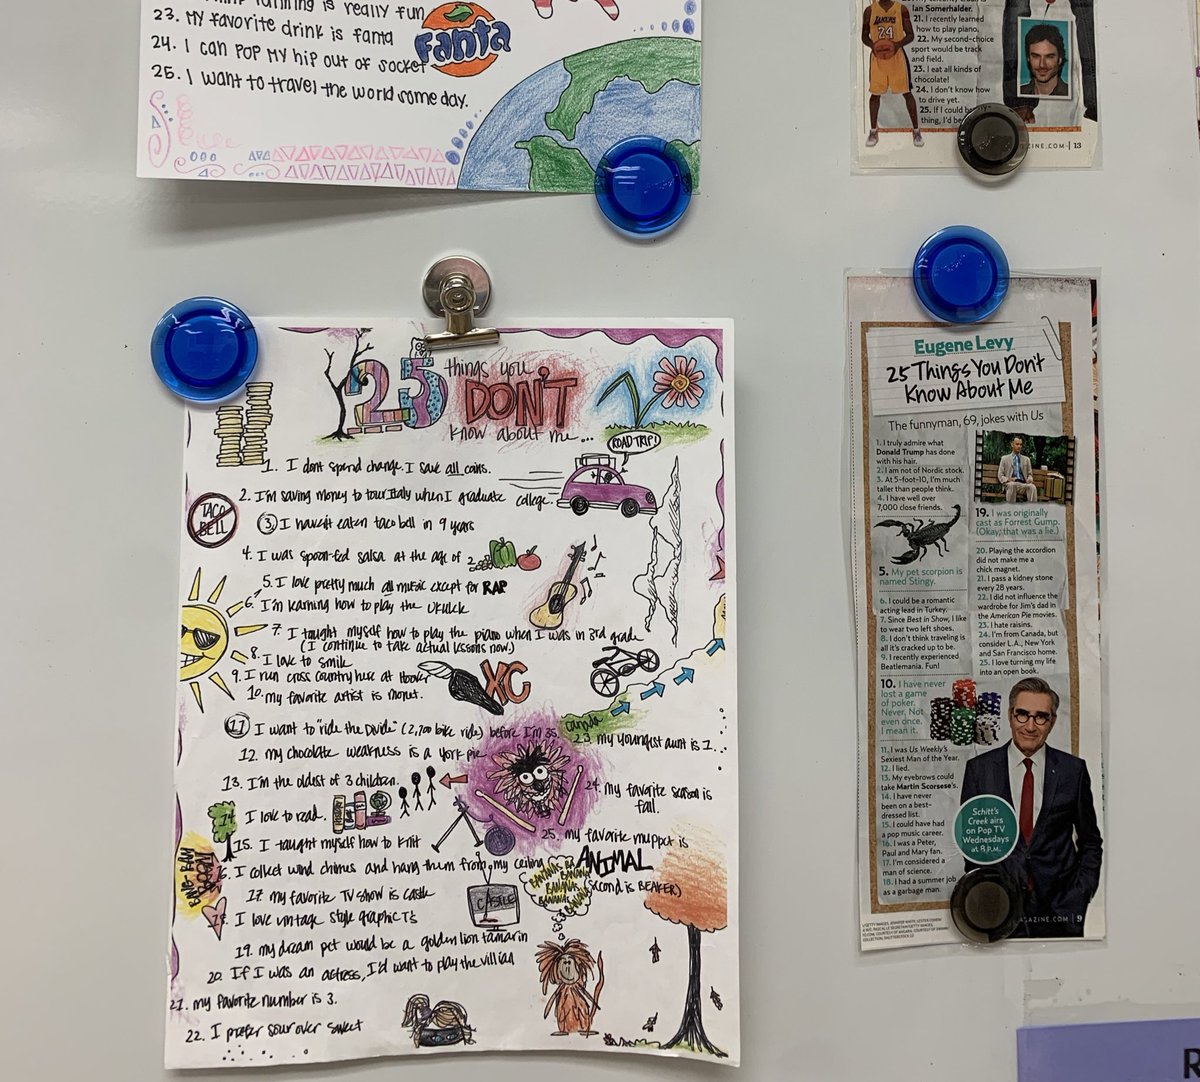 is really fun
23. My favorite drink is fanta
24. I can pop my hip out of socket
25. I want to travel the world some day.
Fanta
Ian Somerhalder.
21. I recently learned
how to play piano.
22. My second-choice
sport would be track
and field.
23. I eat all kinds of
chocolate!
24. I don't know how
to drive yet.
25. If I could be
thing, I'd be
LAKERS
24
AZINE.COM | 13
25 things you
DON'T
know about me...
ROAD TRIP!
1. I dont spend change. I save all coins.
2. I'm saving money to tour Italy when I graduate college.
TACO
BELL
3. I haven't eaten taco bell in 9 years
4. I was spoon-fed salsa at the age of 2
5. I love pretty much all music except for RAP
6. I'm learning how to play the Ukulele
7. I taught myself how to play the piano when I was in 3rd grade
(I continue to take actual lessons now.)
8. I love to smile
9. I run cross country here at Hoover
XC
10. my favorite artist is monet.
11. I want to "ride the Divide" (2,700 bike ride) before I'm 35.
canada
12. my chocolate weakness is a york pie
23. my youngest aunt is 1.
13. I'm the oldest of 3 children.
24. my favorite season is
fall.
14. I love to read.
15. I taught myself how to knit
25. my favorite muppet is
ANIMAL
(second is BEAKER)
16. I collect wind chimes and hang them from my ceiling
17. my favorite TV show is castle
CASTLE
BANANAS
18. I love vintage style graphic T's
19. my dream pet would be a golden lion tamarin
20. If I was an actress, I'd want to play the villian
21. my favorite number is 3.
22. I prefer sour over sweet
Eugene Levy
25 Things You Don't
Know About Me
The funnyman, 69, jokes with Us
1. I truly admire what
Donald Trump has done
with his hair.
2. I am not of Nordic stock.
3. At 5-foot-10, I'm much
taller than people think.
4. I have well over
7,000 close friends.
5. My pet scorpion is
named Stingy.
6. I could be a romantic
acting lead in Turkey.
7. Since Best in Show, I like
to wear two left shoes.
8. I don't think traveling is
all it's cracked up to be.
9. I recently experienced
Beatlemania. Fun!
10. I have never
lost a game
of poker.
Never. Not
even once.
I mean it.
11. I was Us Weekly's
Sexiest Man of the Year.
12. I lied.
13. My eyebrows could
take Martin Scorsese's.
14. I have never
been on a best-
dressed list.
15. I could have had
a pop music career.
16. I was a Peter,
Paul and Mary fan.
17. I'm considered a
man of science.
18. I had a summer job
as a garbage man.
19. I was originally
cast as Forrest Gump.
(Okay, that was a lie.)
20. Playing the accordion
did not make me a
chick magnet.
21. I pass a kidney stone
every 28 years.
22. I did not influence the
wardrobe for Jim's dad in the
American Pie movies.
23. I hate raisins.
24. I'm from Canada, but
consider L.A., New York
and San Francisco home.
25. I love turning my life
into an open book.
Schitt's
Creek airs
on Pop TV
Wednesdays
at 8 P.M.
AGAZINE.COM | 9
R